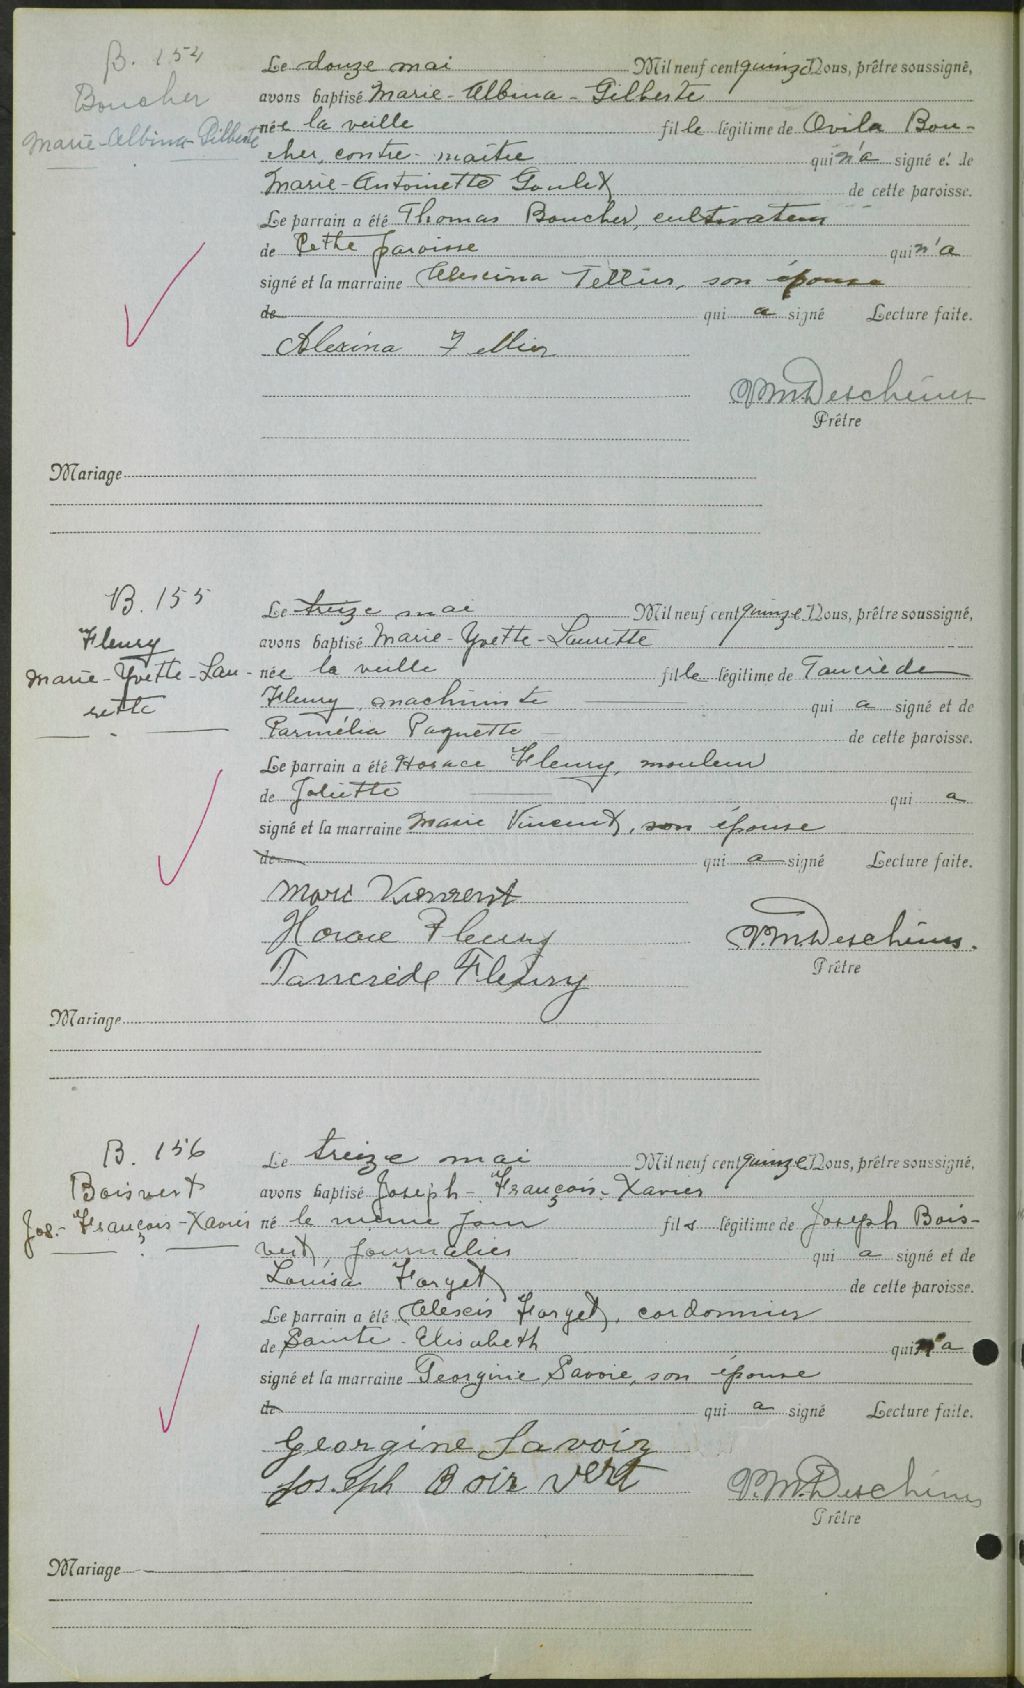 B. 154
Boucher
Marie-Albina-Gilberte
Le douze mai Mil neuf cent quinze Nous, prêtre soussigné,
avons baptisé Marie-Albina-Gilberte
née la veille fille légitime de Ovila Bou-
cher, contre-maître qui n'a signé et de
Marie-Antoinette Goulet de cette paroisse.
Le parrain a été Thomas Boucher, cultivateur
de cette paroisse qui n'a
signé et la marraine Alexina Tellier, son épouse
de qui a signé Lecture faite.
Alexina Tellier
V.M. Deschênes
Prêtre
Mariage
B. 155
Fleury
Marie-Yvette-Lau-
rette
Le treize mai Mil neuf cent quinze Nous, prêtre soussigné,
avons baptisé Marie-Yvette-Laurette
née la veille fille légitime de Tancrède
Fleury, machiniste qui a signé et de
Parmélia Paquette de cette paroisse.
Le parrain a été Horace Fleury, mouleur
de Joliette qui a
signé et la marraine Marie Vincent, son épouse
de qui a signé Lecture faite.
Marie Vincent
Horace Fleury
V.M. Deschênes.
Tancrède Fleury
Prêtre
Mariage
B. 156
Boisvert
Jos.-François-Xavier
Le treize mai Mil neuf cent quinze Nous, prêtre soussigné,
avons baptisé Joseph-François-Xavier
né le même jour fils légitime de Joseph Bois-
vert, journalier qui a signé et de
Louisa Forget de cette paroisse.
Le parrain a été Alexis Forget, cordonnier
de Sainte-Elisabeth qui n'a
signé et la marraine Georgine Savoie, son épouse
de qui a signé Lecture faite.
Georgine Savoie
Joseph Boisvert
V.M. Deschênes
Prêtre
Mariage